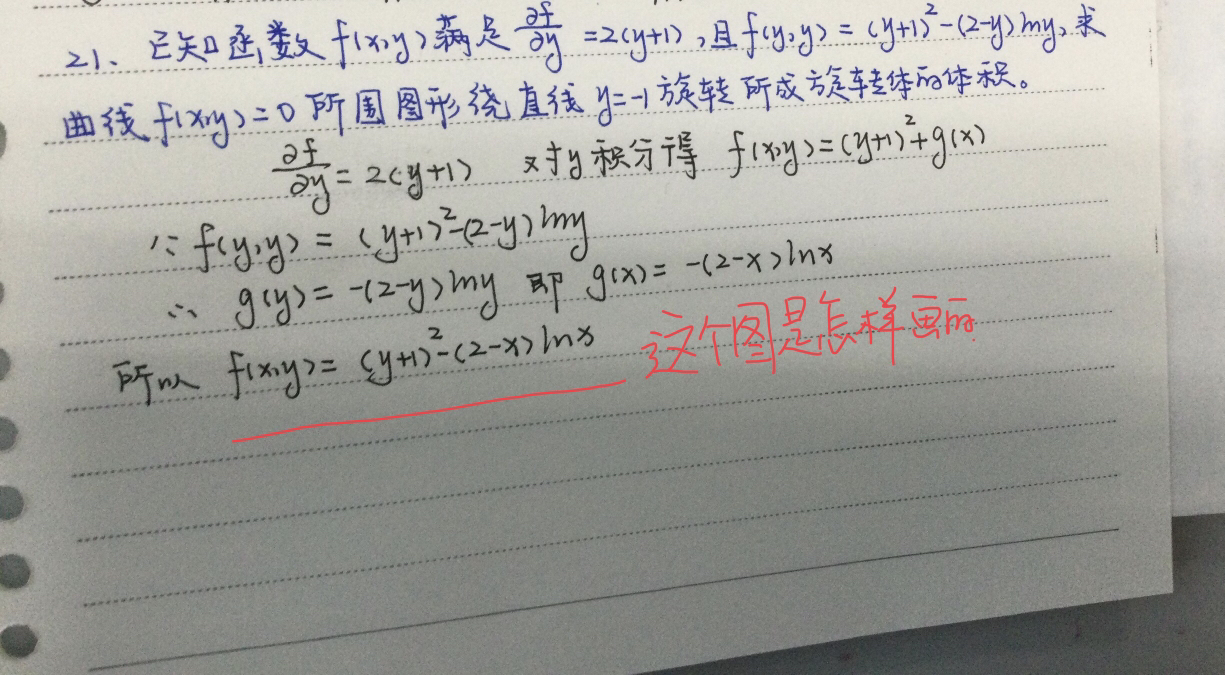 21、已知函数 f(x,y) 满足 ∂f/∂y =2(y+1),且 f(y,y) = (y+1)²-(2-y)lny,求
曲线 f(x,y)=0 所围图形绕直线 y=-1 旋转所成旋转体的体积。
∂f/∂y = 2(y+1) 对y积分得 f(x,y)=(y+1)²+g(x)
∵ f(y,y) = (y+1)²-(2-y)lny
∴ g(y) = -(2-y)lny 即 g(x) = -(2-x)lnx
所以 f(x,y) = (y+1)²-(2-x)lnx 这个图是怎样画的